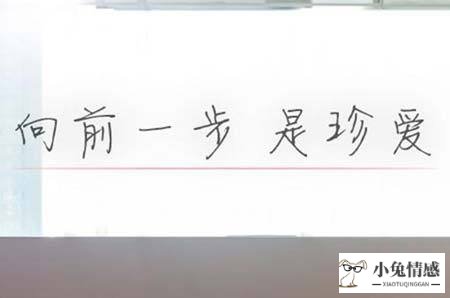 向前一步 是珍爱
小兔情感
XIAOTUQINGGAN